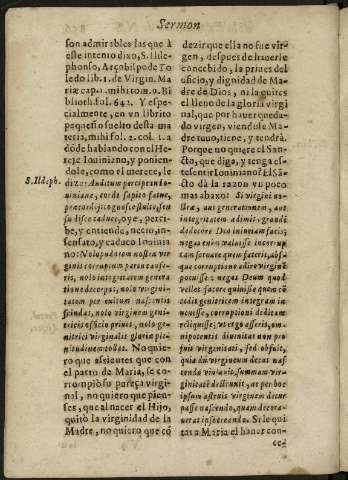 Sermon
son admirables las que à
este intento dixo, S. Ilde-
phonso, Arçobispo de To
ledo lib. 1. de Virgin. Ma
riæ cap. 1. mihi tom. 9. Bi
blioth. fol. 642. Y espe-
cialmente, en vn librito
pequeño suelto desta ma
teria, mihi fol. 2. col. 1. a
dõde hablando con el He-
reje Iouiniano, y ponien-
dole, como el merece, le
S. Ildeph.
dize: Auditum percipe tu Io-
uiniane, corde sapito fatue,
su disce caduce, oye, perci-
be, y entiende, necio, in-
sensato, y caduco Iouinia
no: Nolo pudorem nostræ vir
ginis corruptum partu asse-
ris, nolo integritatem genera
tione decerpas, nolo virgini-
tatem per exitum nascentis
scindas, nolo virginem geni-
tricis officio priues, nolo ge-
nitrici virginalis gloriæ ple-
nitudinem tollas. No quie-
ro que assientes que con
el parto de Maria, se co-
rrompiò su pureça virgi-
nal, no quiero que pien-
ses, que al nacer el Hijo,
quitò la virginidad de la
Madre, no quiero que cõ
dezir que ella no fue vir-
gen, despues de hauerle
concebido, la priues del
oficio, y dignidad de Ma-
dre de Dios, ni la quites
el lleno de la gloria virgi
nal, que por hauer queda-
do virgen, viendose Ma-
dre tuuo, tiene, y tendrà.
Porque no quiere el San-
cto, que diga, y tenga es-
te sentir Iouiniano? El Sã-
cto dà la razon vn poco
mas abaxo: Si virgini no-
stra, aut generationem, aut
integritatem adimis, grandi
dedecore Deo iniuriam facis;
negas enim valuisse incorrup
tam seruare quem fateris, absq;
que corruptione adire virginẽ
potuisse: negas Deum quod
velles facere quiuisse quem cõ
cedis genitricem integram in
uenisse, corruptioni deditam
reliquisse; vt ergo asseris, om-
nipotentis diuinitas non pro
fuit virginitati, sed obfuit,
quia dũ virgineum decus nas-
cendo violauit, summam vir-
ginitatẽ destruxit, ac per hoc
ipsum astruis virginem decus
passe nascendo, quam decora-
uerat insecendo. Si le qui-
tas a Maria el hauer con-
ce-